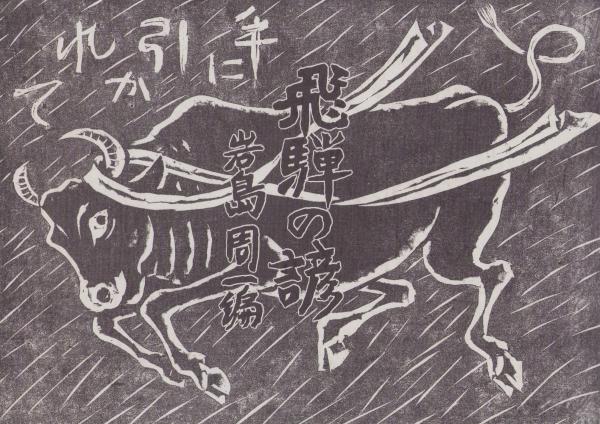 牛に
引か
れて
飛騨の諺
岩島周一編